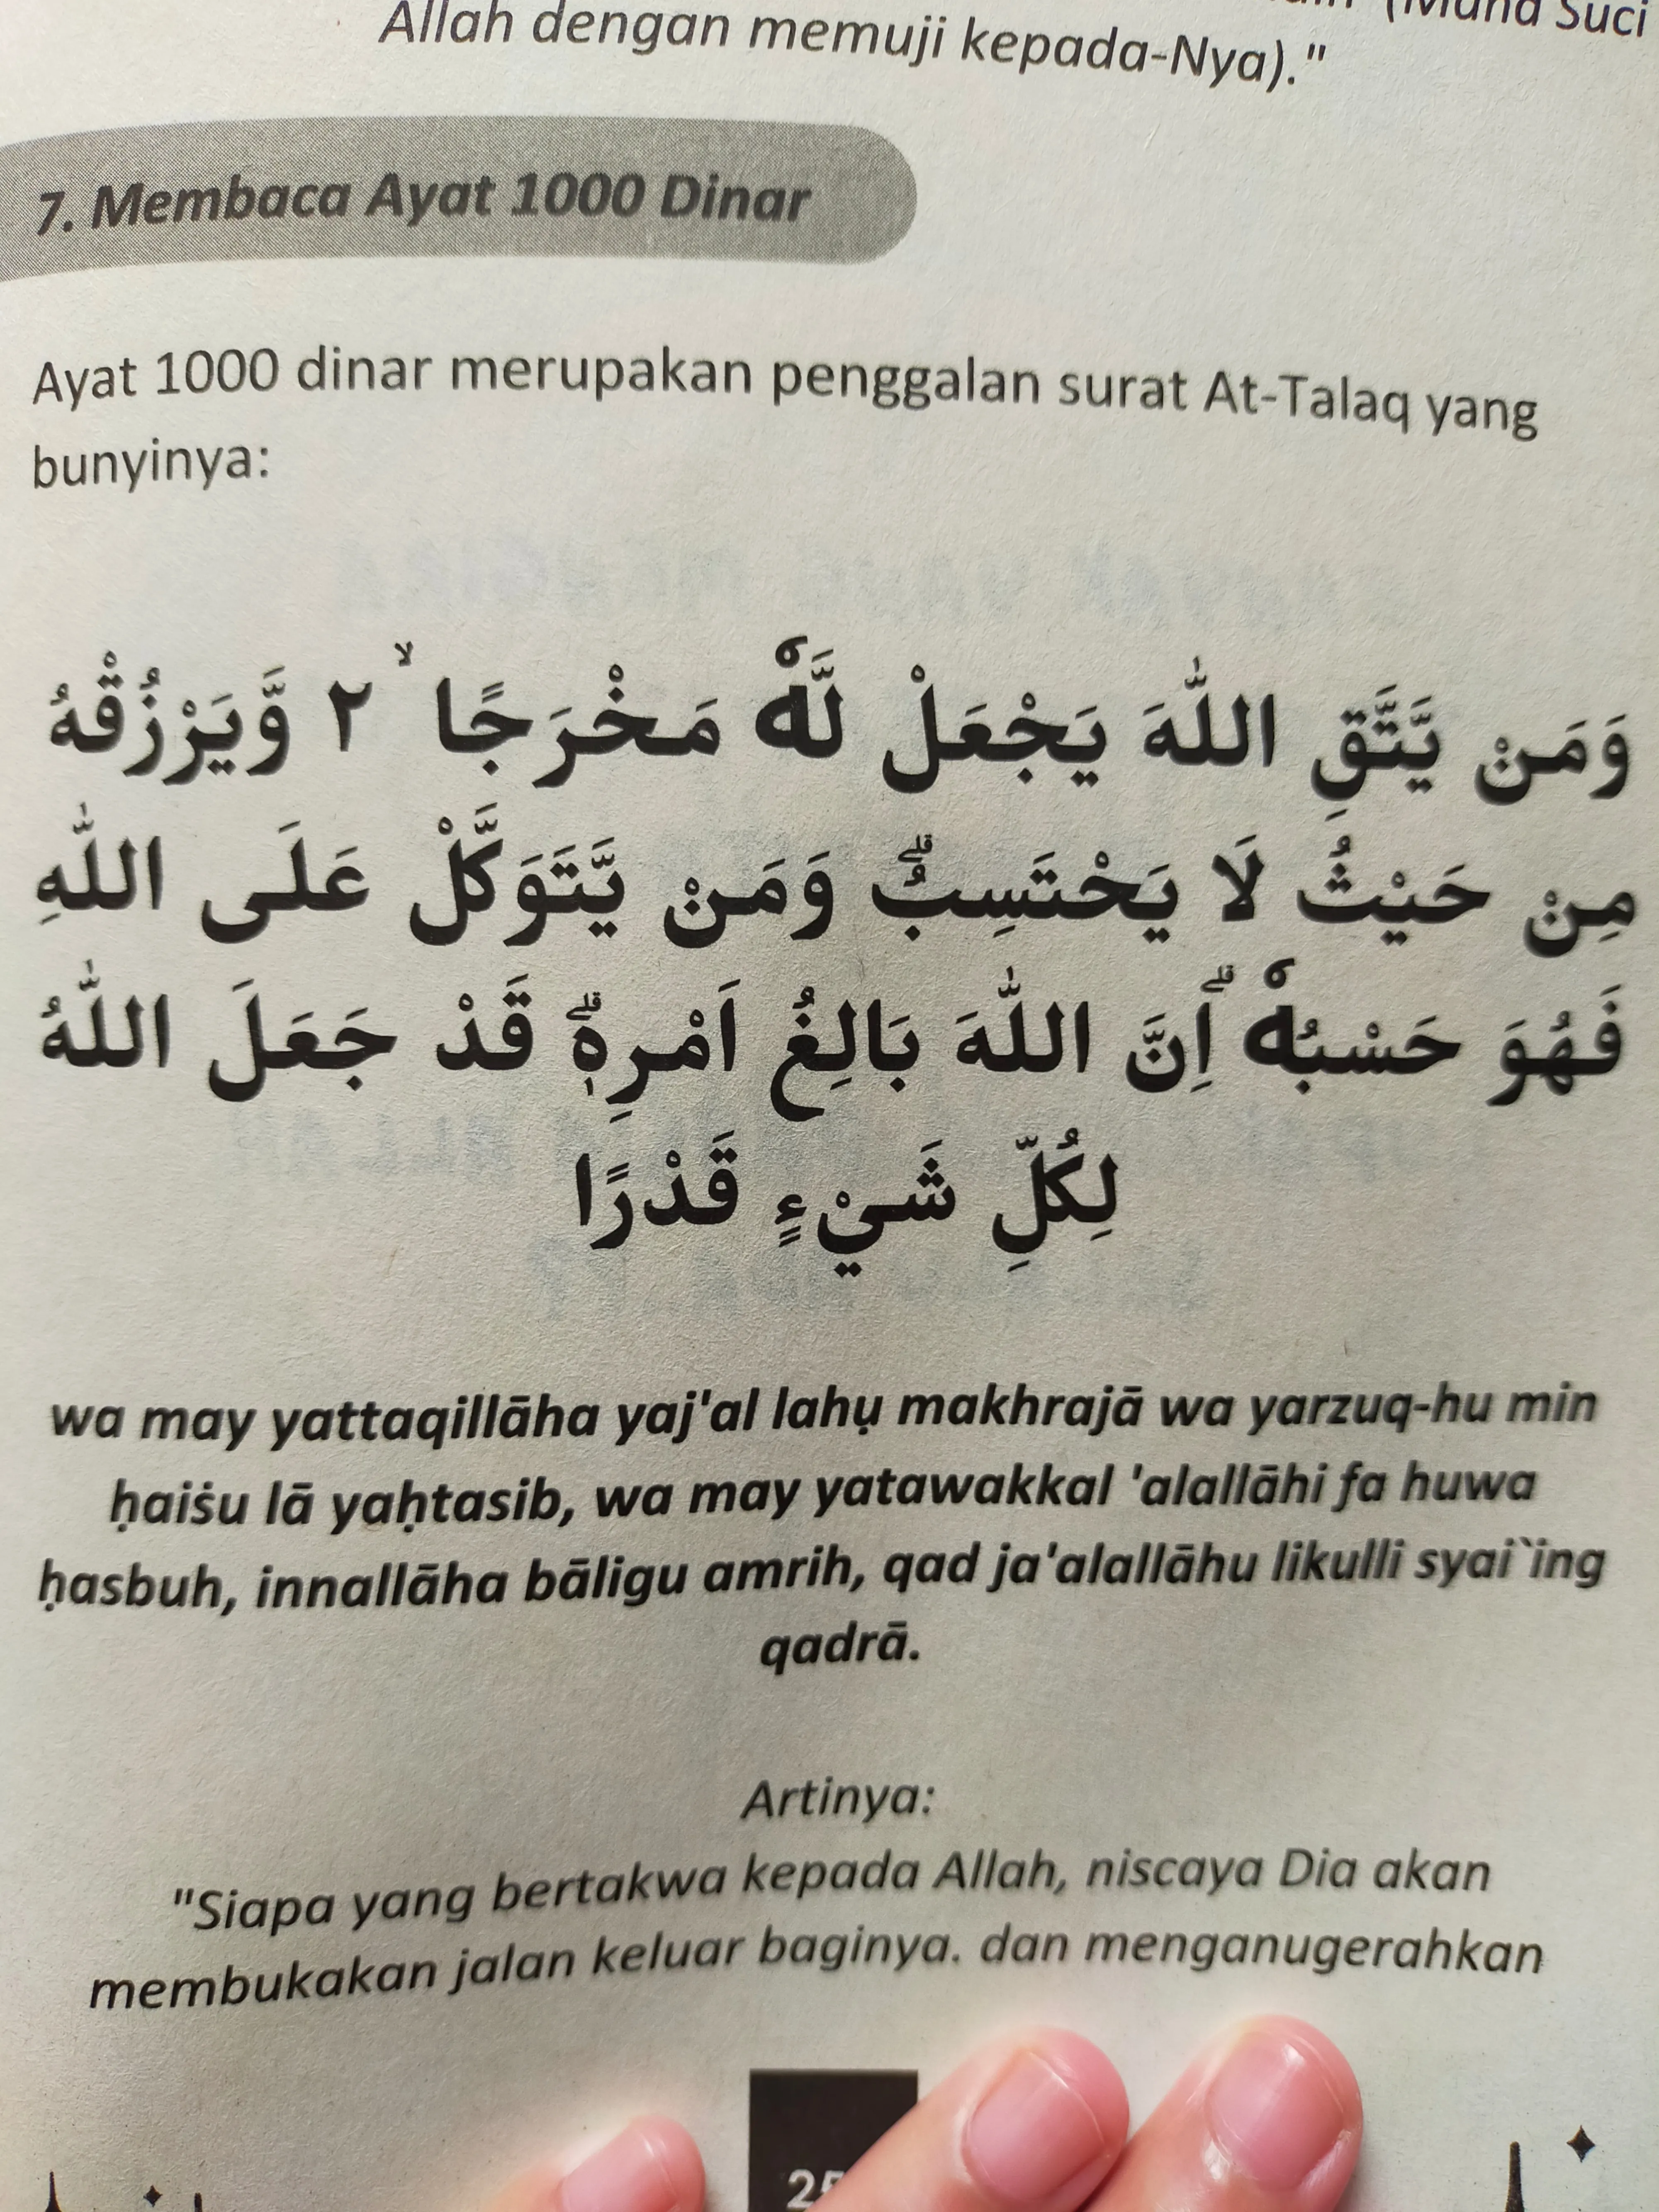 (Maha Suci
Allah dengan memuji kepada-Nya)."
7. Membaca Ayat 1000 Dinar
Ayat 1000 dinar merupakan penggalan surat At-Talaq yang
bunyinya:
وَمَنْ يَّتَّقِ اللّٰهَ يَجْعَلْ لَّهٗ مَخْرَجًا ۙ ٢ وَّيَرْزُقْهُ
مِنْ حَيْثُ لَا يَحْتَسِبُۗ وَمَنْ يَّتَوَكَّلْ عَلَى اللّٰهِ
فَهُوَ حَسْبُهٗ ۗاِنَّ اللّٰهَ بَالِغُ اَمْرِهٖۗ قَدْ جَعَلَ اللّٰهُ
لِكُلِّ شَيْءٍ قَدْرًا
wa may yattaqillāha yaj'al lahụ makhrajā wa yarzuq-hu min
ḥaiṡu lā yaḥtasib, wa may yatawakkal 'alallāhi fa huwa
ḥasbuh, innallāha bāligu amrih, qad ja'alallāhu likulli syai`ing
qadrā.
Artinya:
"Siapa yang bertakwa kepada Allah, niscaya Dia akan
membukakan jalan keluar baginya. dan menganugerahkan